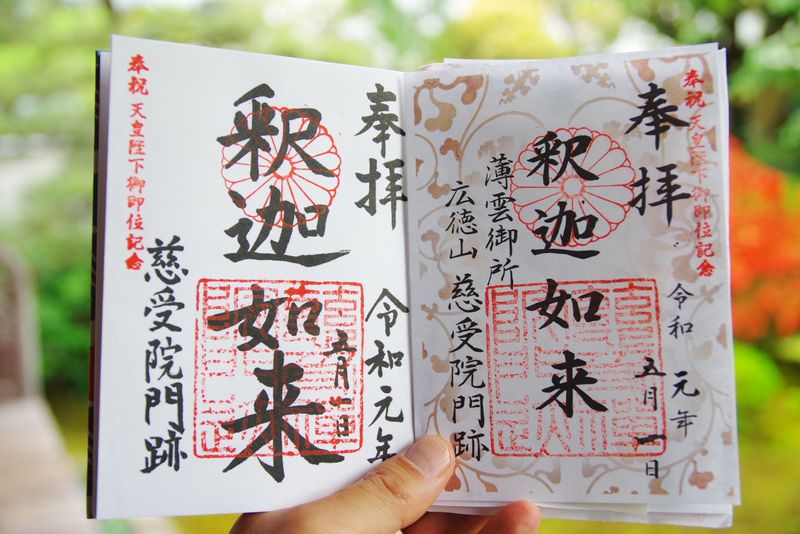 奉祝 天皇陛下御即位記念
奉拝
令和元年
五月一日
釈迦如来
薄雲御所
広徳山 慈受院門跡
奉拝
令和元年
五月一日
釈迦如来
慈受院門跡
奉祝 天皇陛下御即位記念